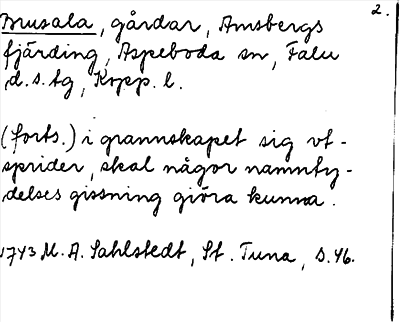 2.
Brusala, gårdar, Amsbergs
fjärding, Aspeboda sn, Falu
d.s.tg, Kopp. l.
(forts.) i grannskapet sig vt-
sprider, skal någor namnty-
delses gissning giöra kunna.
1743 M. A. Sahlstedt, St. Tuna, s. 46.